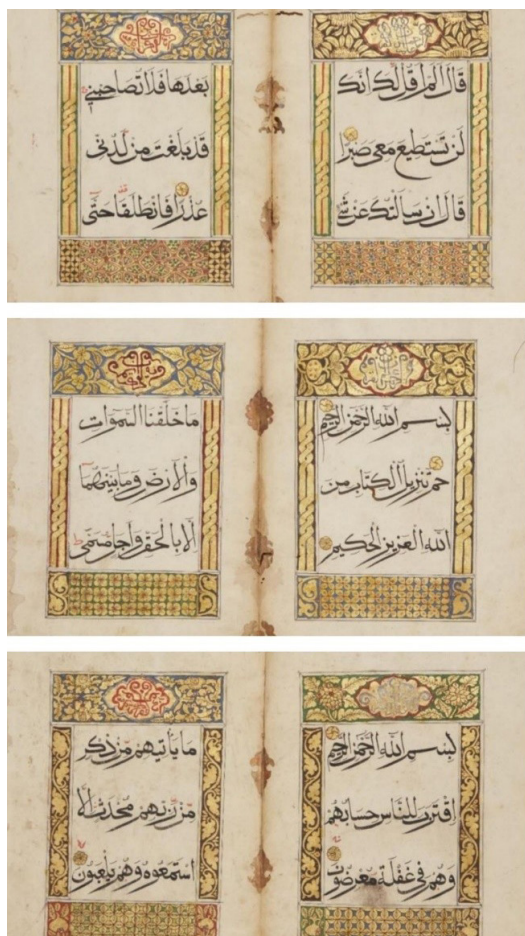 قَالَ اَلَمْ اَقُلْ لَكَ اِنَّكَ
لَنْ تَسْتَطِيعَ مَعِيَ صَبْرًا
قَالَ اِنْ سَاَلْتُكَ عَنْ شَىْءٍ
بَعْدَهَا فَلَا تُصَاحِبْنِي
قَدْ بَلَغْتَ مِنْ لَدُنِّي
عُذْرًا فَانْطَلَقَا حَتَّى
بِسْمِ اللهِ الرَّحْمَنِ الرَّحِيمِ
حم تَنْزِيلُ الْكِتَابِ مِنَ
اللهِ الْعَزِيزِ الْحَكِيمِ
مَا خَلَقْنَا السَّمَوَاتِ
وَالْاَرْضَ وَمَا بَيْنَهُمَا
اِلَّا بِالْحَقِّ وَاَجَلٍ مُسَمًّى
بِسْمِ اللهِ الرَّحْمَنِ الرَّحِيمِ
اِقْتَرَبَ لِلنَّاسِ حِسَابُهُمْ
وَهُمْ فِي غَفْلَةٍ مُعْرِضُونَ
مَا يَأْتِيهِمْ مِنْ ذِكْرٍ
مِنْ رَبِّهِمْ مُحْدَثٍ اِلَّا
اسْتَمَعُوهُ وَهُمْ يَلْعَبُونَ